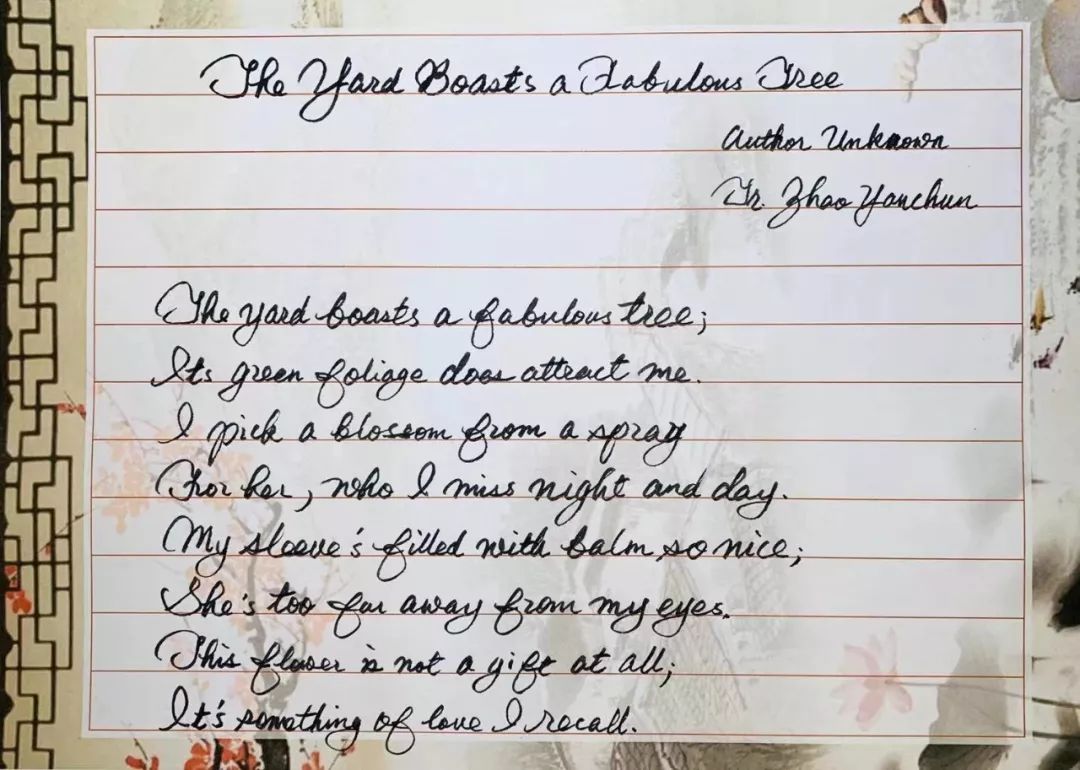 The Yard Boasts a Fabulous Tree
Author Unknown
Tr. Zhao Yanchun
The yard boasts a fabulous tree;
Its green foliage does attract me.
I pick a blossom from a spray
For her, who I miss night and day.
My sleeve's filled with balm so nice;
She's too far away from my eyes.
This flower is not a gift at all;
It's something of love I recall.